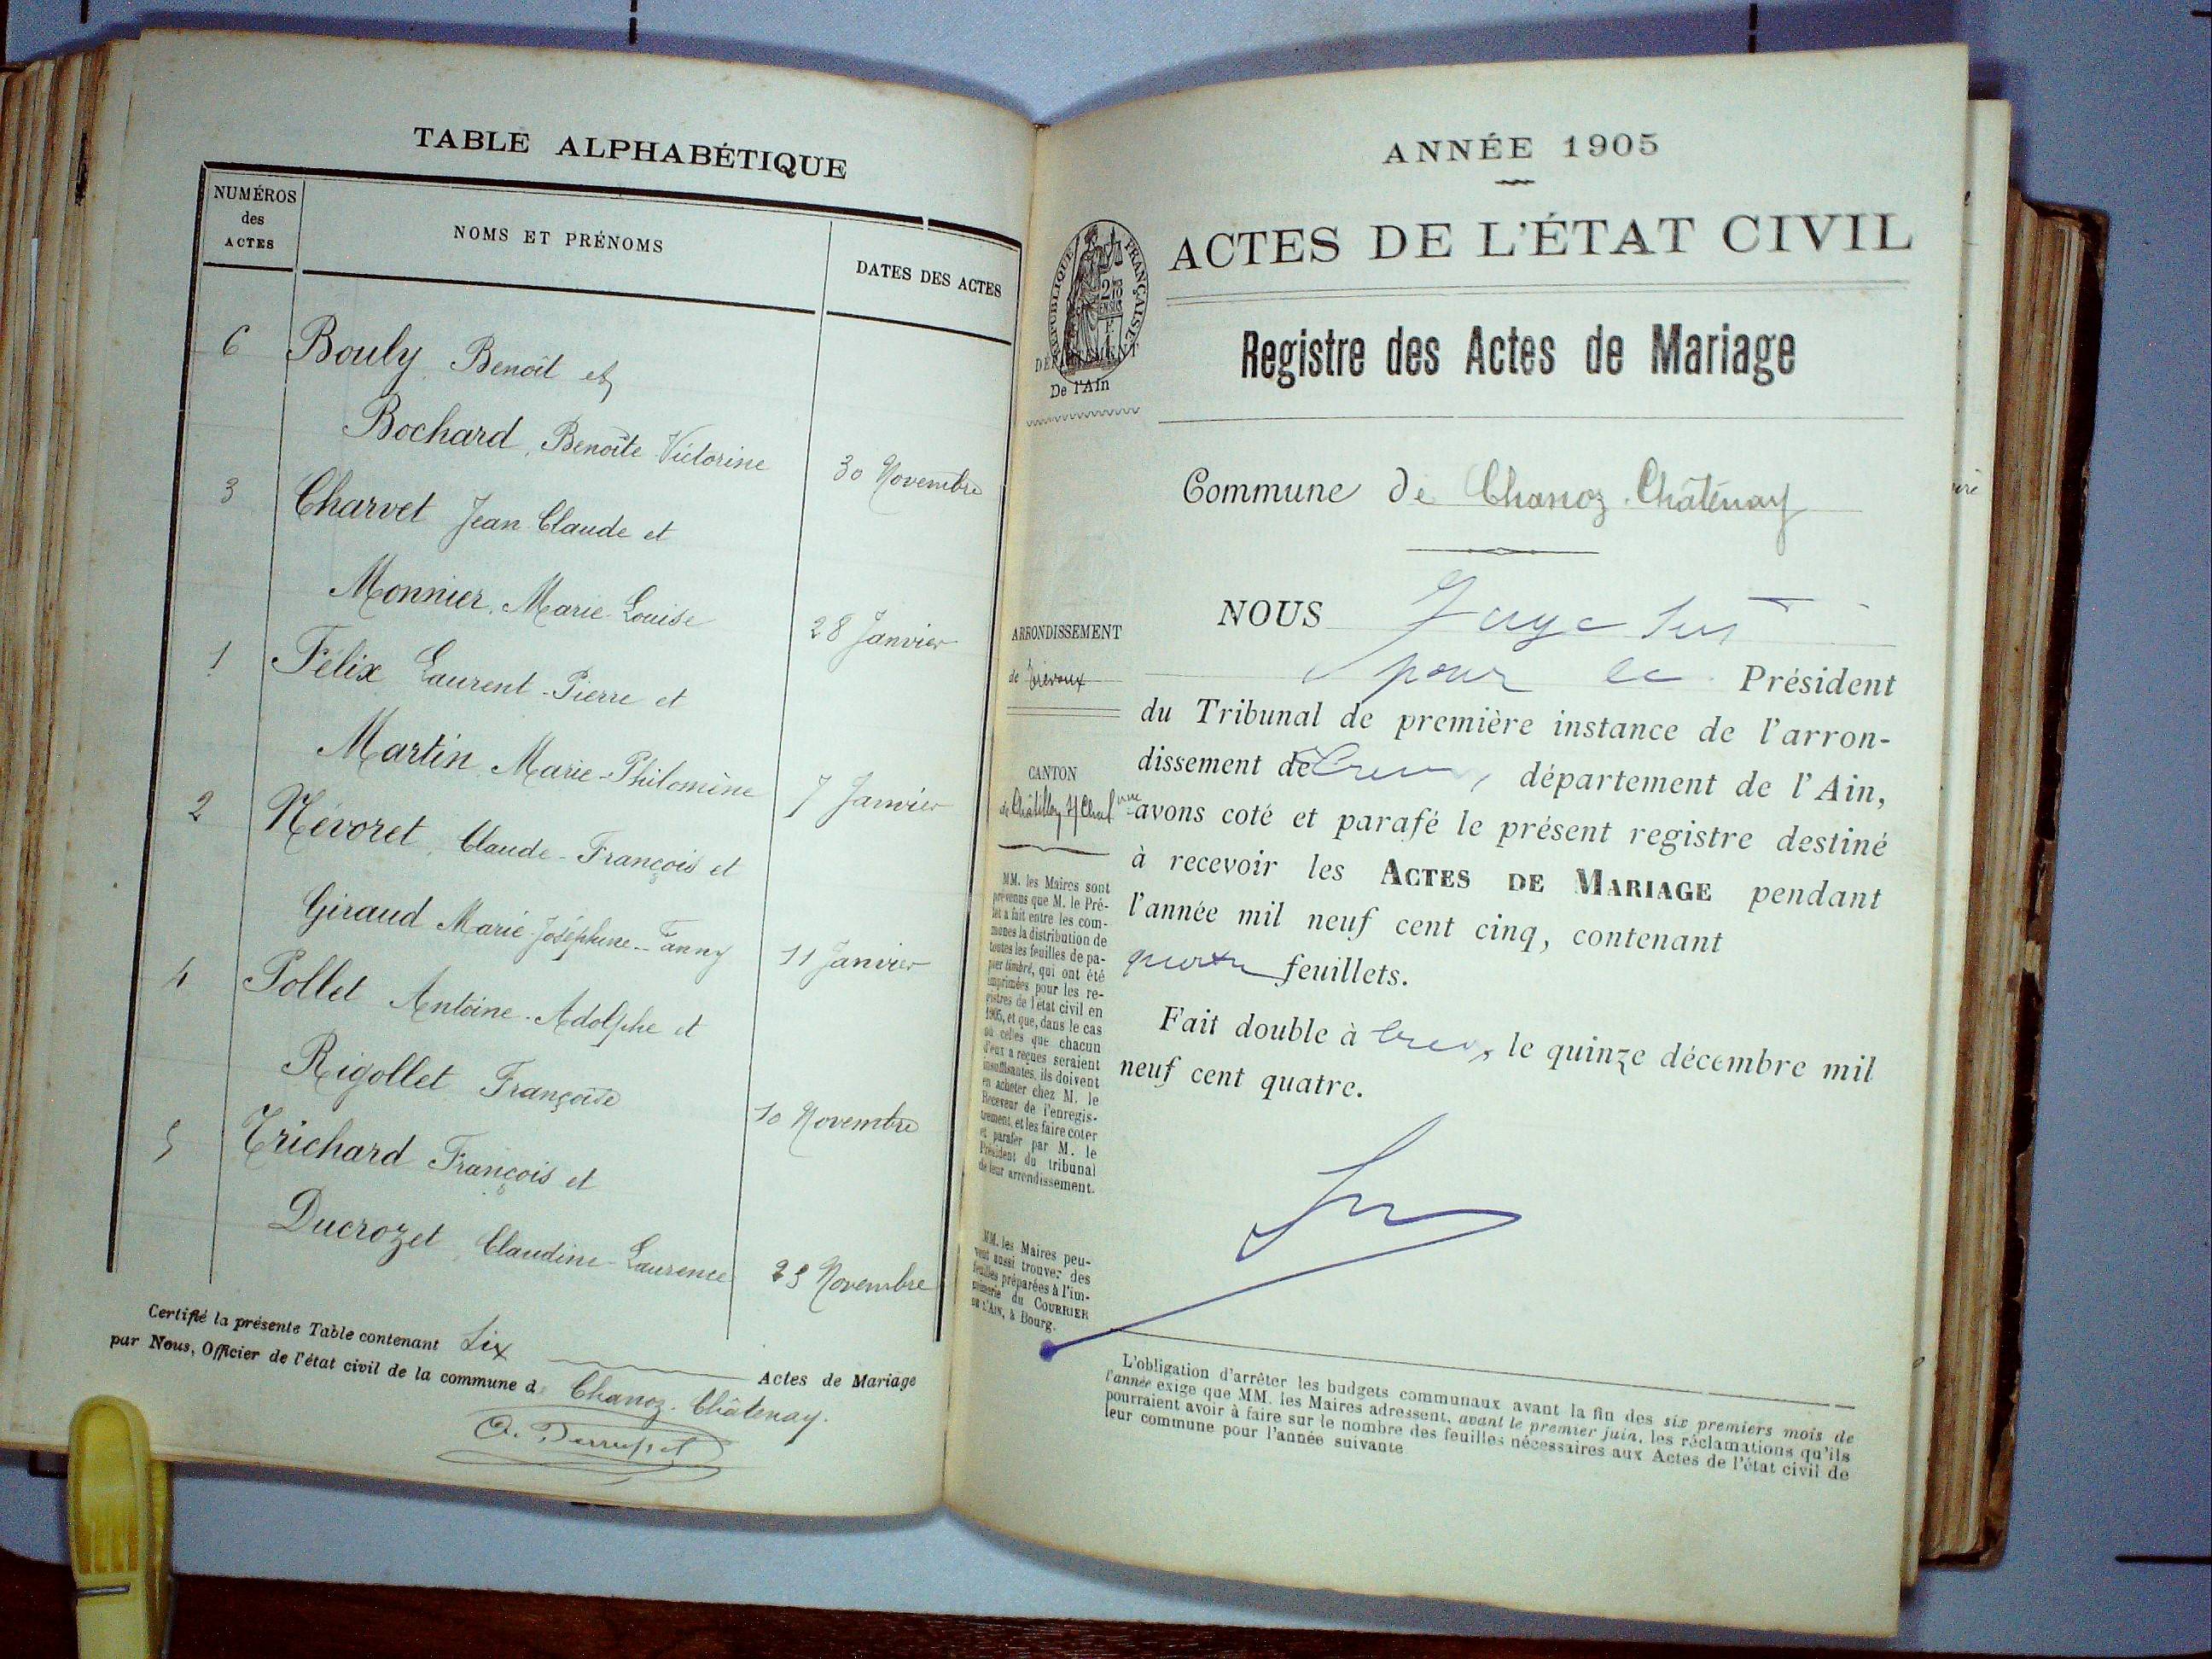 TABLE ALPHABÉTIQUE
NUMÉROS
des
ACTES
NOMS ET PRÉNOMS
DATES DES ACTES
6 Bouly Benoît et
Bochard, Benoîte Victorine 30 Novembre
3 Charvet Jean Claude et
Monnier, Marie-Louise 28 Janvier
1 Félix Laurent-Pierre et
Martin, Marie-Philomène 7 Janvier
2 Névoret, Claude-François et
Giraud Marie-Joséphine-Fanny 11 Janvier
4 Pollet Antoine-Adolphe et
Rigollet Françoise 10 Novembre
5 Trichard François et
Ducrozet, Claudine-Laurence 25 Novembre
Certifié la présente Table contenant Six Actes de Mariage
par Nous, Officier de l'état civil de la commune de Chanoz-Châtenay.
ANNÉE 1905
ACTES DE L'ÉTAT CIVIL
RÉPUBLIQUE FRANÇAISE
DÉPARTEMENT
De l'Ain
Registre des Actes de Mariage
Commune de Chanoz-Châtenay
ARRONDISSEMENT
de Trévoux
CANTON
MM. les Maires sont
prévenus que M. le Pré-
fet a fait entre les com-
munes la distribution de
toutes les feuilles de pa-
pier timbré, qui ont été
imprimées pour les re-
gistres de l'état civil en
1905, et que, dans le cas
où celles que chacun
d'eux a reçues seraient
insuffisantes, ils doivent
en acheter chez M. le
Receveur de l'enregis-
trement, et les faire coter
et parafer par M. le
Président du tribunal
de leur arrondissement.
MM. les Maires peu-
vent aussi trouver des
feuilles préparées à l'im-
primerie du COURRIER
DE L'AIN, à Bourg.
NOUS
pour le Président
du Tribunal de première instance de l'arron-
dissement de , département de l'Ain,
avons coté et parafé le présent registre destiné
à recevoir les ACTES DE MARIAGE pendant
l'année mil neuf cent cinq, contenant
quatre feuillets.
Fait double à , le quinze décembre mil
neuf cent quatre.
L'obligation d'arrêter les budgets communaux avant la fin des six premiers mois de
l'année exige que MM. les Maires adressent, avant le premier juin, les réclamations qu'ils
pourraient avoir à faire sur le nombre des feuilles nécessaires aux Actes de l'état civil de
leur commune pour l'année suivante